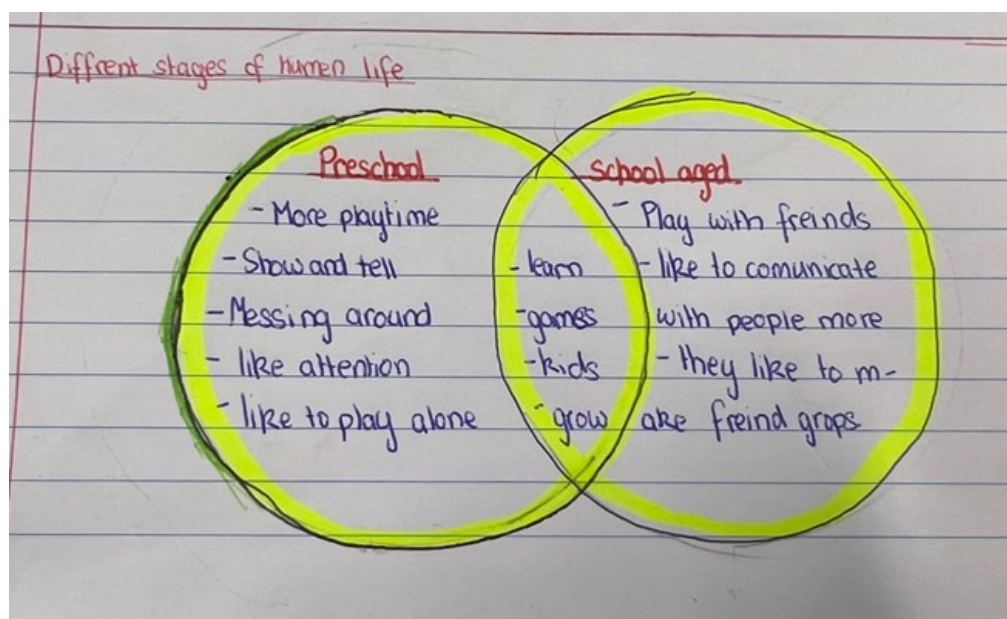 Diffrent stages of humen life
Preschool
- More playtime
- Show and tell
- Messing around
- like attention
- like to play alone
- learn
- games
- kids
- grow
school aged
- Play with freinds
- like to comunicate
with people more
- they like to m-
ake freind grops